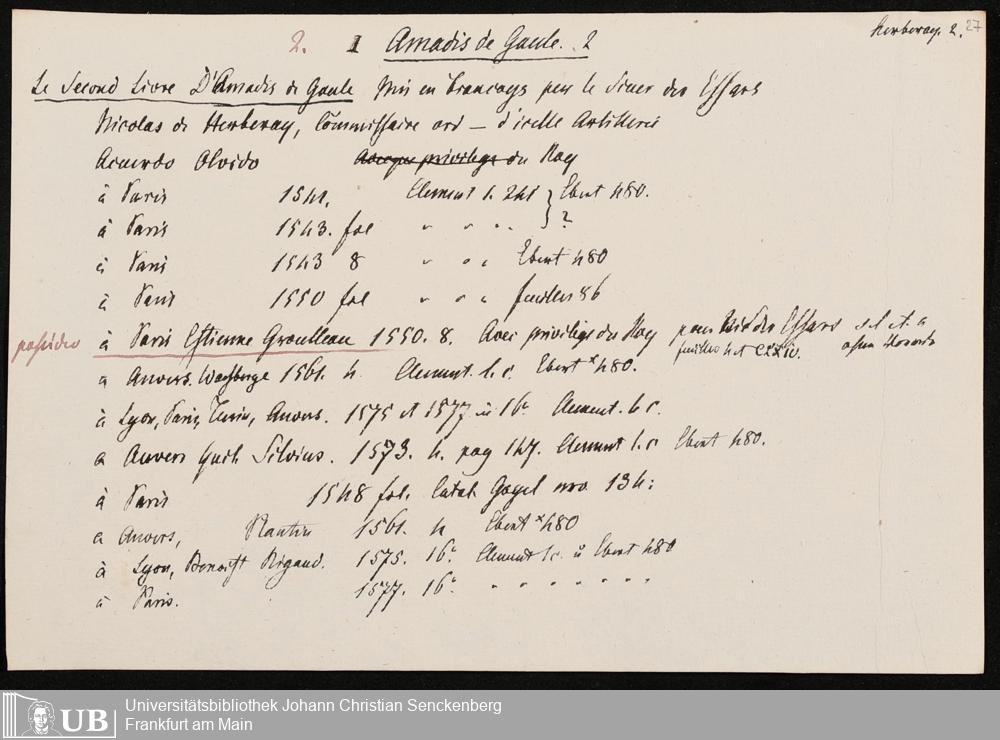 2. 1 Amadis de Gaule. 2 Herberay. 2. 27
Le Second Livre D'Amadis de Gaule Mis en Francoys par le Sieur des Essars
Nicolas de Herberay, Commissaire ord — d'icelle Artillerie
Acuerdo Olvido Avecques privilege du Roy
à Paris 1541. Clement l. 241 } Ebert 480.
à Paris 1543. fol " " " ?
à Paris 1543 8 " " " Ebert 480
à Paris 1550 fol " " " feuilles 86
possideo à Paris Estienne Groulleau 1550. 8. Avec privilege du Roy pour des Essars s. l. et. a
feuilles
a Anvers. 1561. 4. Clement. l. c. Ebert * 480.
à Lyon, Paris, Turin, Anvers. 1575 et 1577 in 16° Clement. l. c.
a Anvers Guil. Silvius. 1573. 4. pag 147. Clement l. c Ebert 480.
à Paris 1548 fol. Catal. Gogel nro 134:
a Anvers, Plantin 1561. 4 Ebert * 480
à Lyon, Benoist Rigaud. 1575. 16° Clement l c. u Ebert 480
à Paris. 1577. 16° " " " " " " "
UB Universitätsbibliothek Johann Christian Senckenberg
Frankfurt am Main